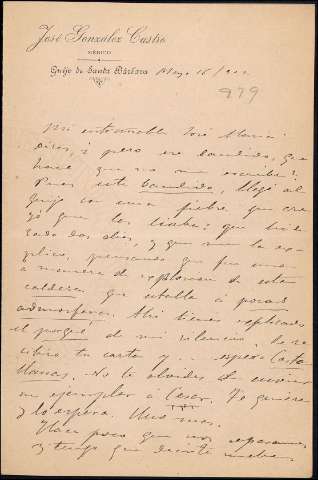 José González Castro
MÉDICO
Guijo de Santa Bárbara
Mayo 16/902
979
Mi entrañable José María:
Dirás, ¿pero ese bandido, que
hace que no me escribe?
Pues este bandido, llegó al
Guijo con una fiebre que
yo que los
dos días, y que me la ex-
plico, pensando que fue una
a manera de explosion de esta
caldera que estalla á pocas
atmósferas. Ahí tienes explicado
el porqué de mi silencio. He re-
cibido tu carta y ... espero Caste-
llanas. No te olvides de enviar
un ejemplar a Cesar. Te quiere
y lo espera. Una mas.
Hace poco que nos separamos
y tengo que decirte